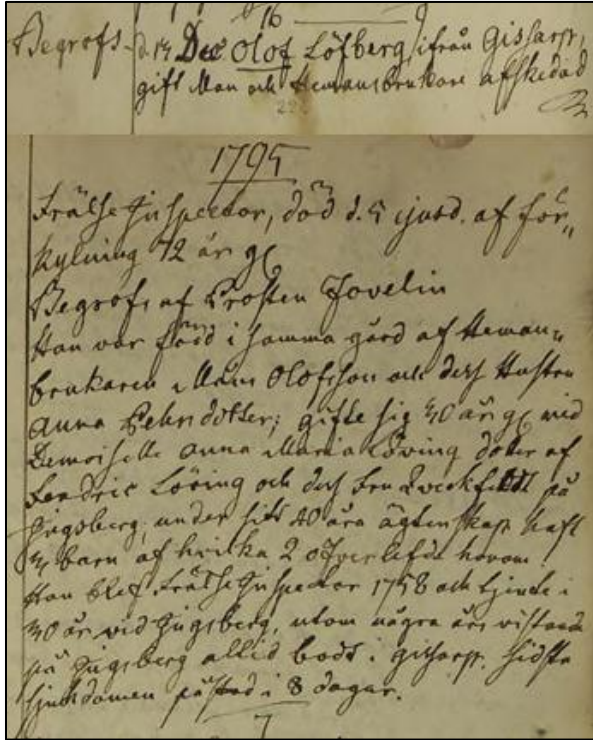 16
Begrofs d. 13 Dec Olof Löfberg, ifrån Gissarp,
gift Man och Hemansbrukare afskedad
1795
Frälse Inspector, död d. 5 ejusd. af för„
kylning 72 år gl
Begrofs af Prosten Jovelin
Han var född i samma gård af Heman„
brukaren Måns Olofsson och dess Hustru
Anna Pehrsdotter; gifte sig 30 år gl med
Demoiselle Anna Maria Löving dotter af
Fendric Löving och dess Fru Zveckfeldt på
Ingsberg, under sitt 40 åra ägtenskap haft
3 barn af hvilka 2 öfverlefde honom.
Han blef Frälse Inspector 1758 och tjente i
30 år vid Ingsberg, utom några års vistande
på Ingsberg alltid bodt i Gissarp. sidsta
sjukdomen påstod i 8 dagar.
7